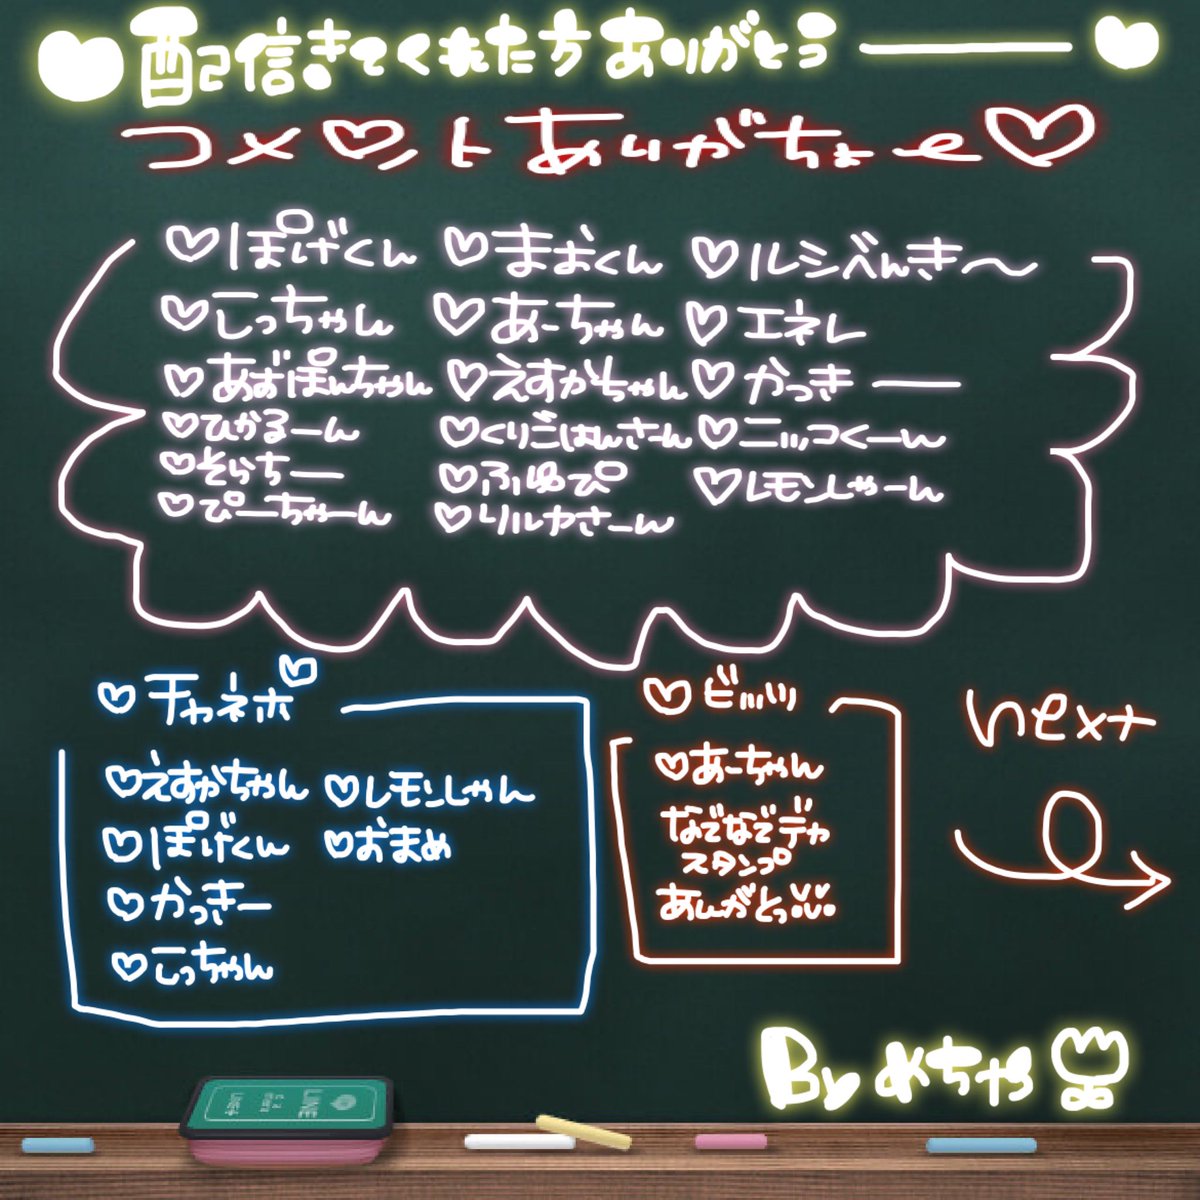 配信きてくれた方ありがとうー
コメントありがちょー
ぽげくん まおくん ルシベんき〜
こっちゃん あーちゃん エネレ
あずぽんちゃん えすかちゃん かっきー
ひかるーん くりごはんさーん ニッコくーん
そらちー ふゆぴ レモンしゃーん
ぴーちゃーん リルヤさーん
チャネポ
えすかちゃん レモンしゃん
ぽげくん おまめ
かっきー
こっちゃん
ビッツ
あーちゃん
なでなでデカ
スタンプ
ありがとっ
next
By めちゃ
LINE